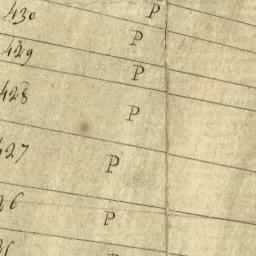 430 P
429 P
428 P
P
427 P
26 P